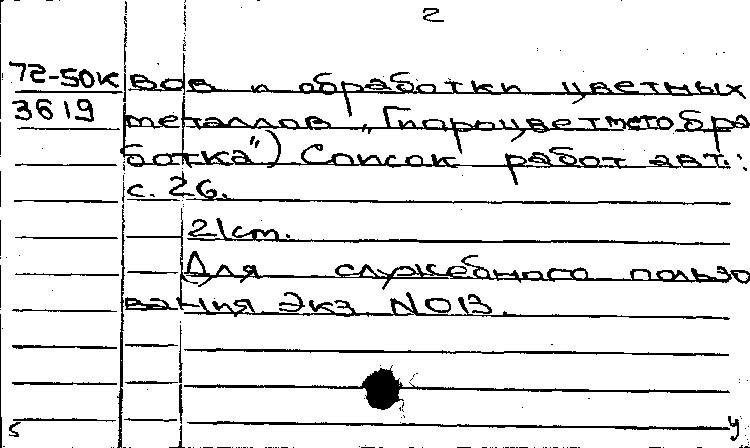 2
72-50к вов и обработки цветных
3619 металлов „Гипроцветметобра
ботка") Список работ авт.:
с. 26.
21см.
(Для служебного пользо
вания Экз. NO13.
5 у